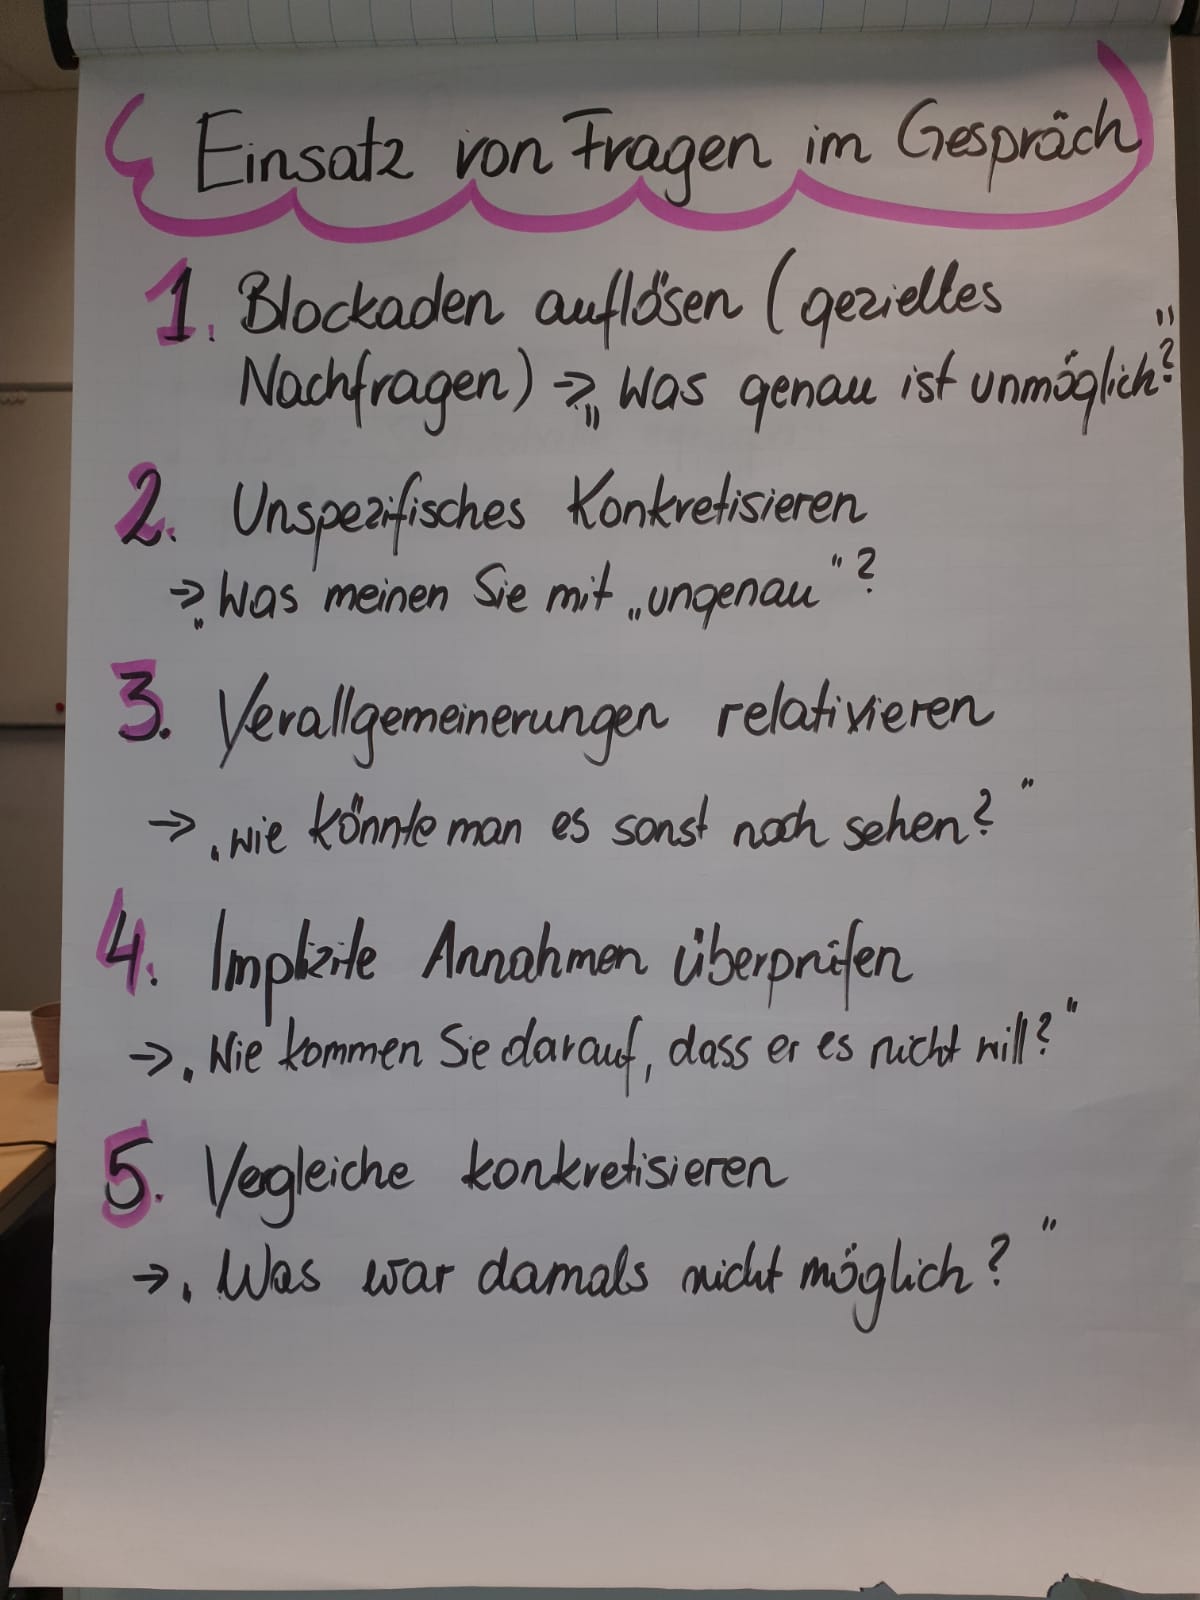 Einsatz von Fragen im Gespräch
1. Blockaden auflösen (gezieltes
Nachfragen) → „Was genau ist unmöglich?"
2. Unspezifisches Konkretisieren
→ „Was meinen Sie mit „ungenau"?
3. Verallgemeinerungen relativieren
→ „Wie könnte man es sonst noch sehen?"
4. Implizite Annahmen überprüfen
→ „Wie kommen Sie darauf, dass er es nicht will?"
5. Vergleiche konkretisieren
→ „Was war damals nicht möglich?"